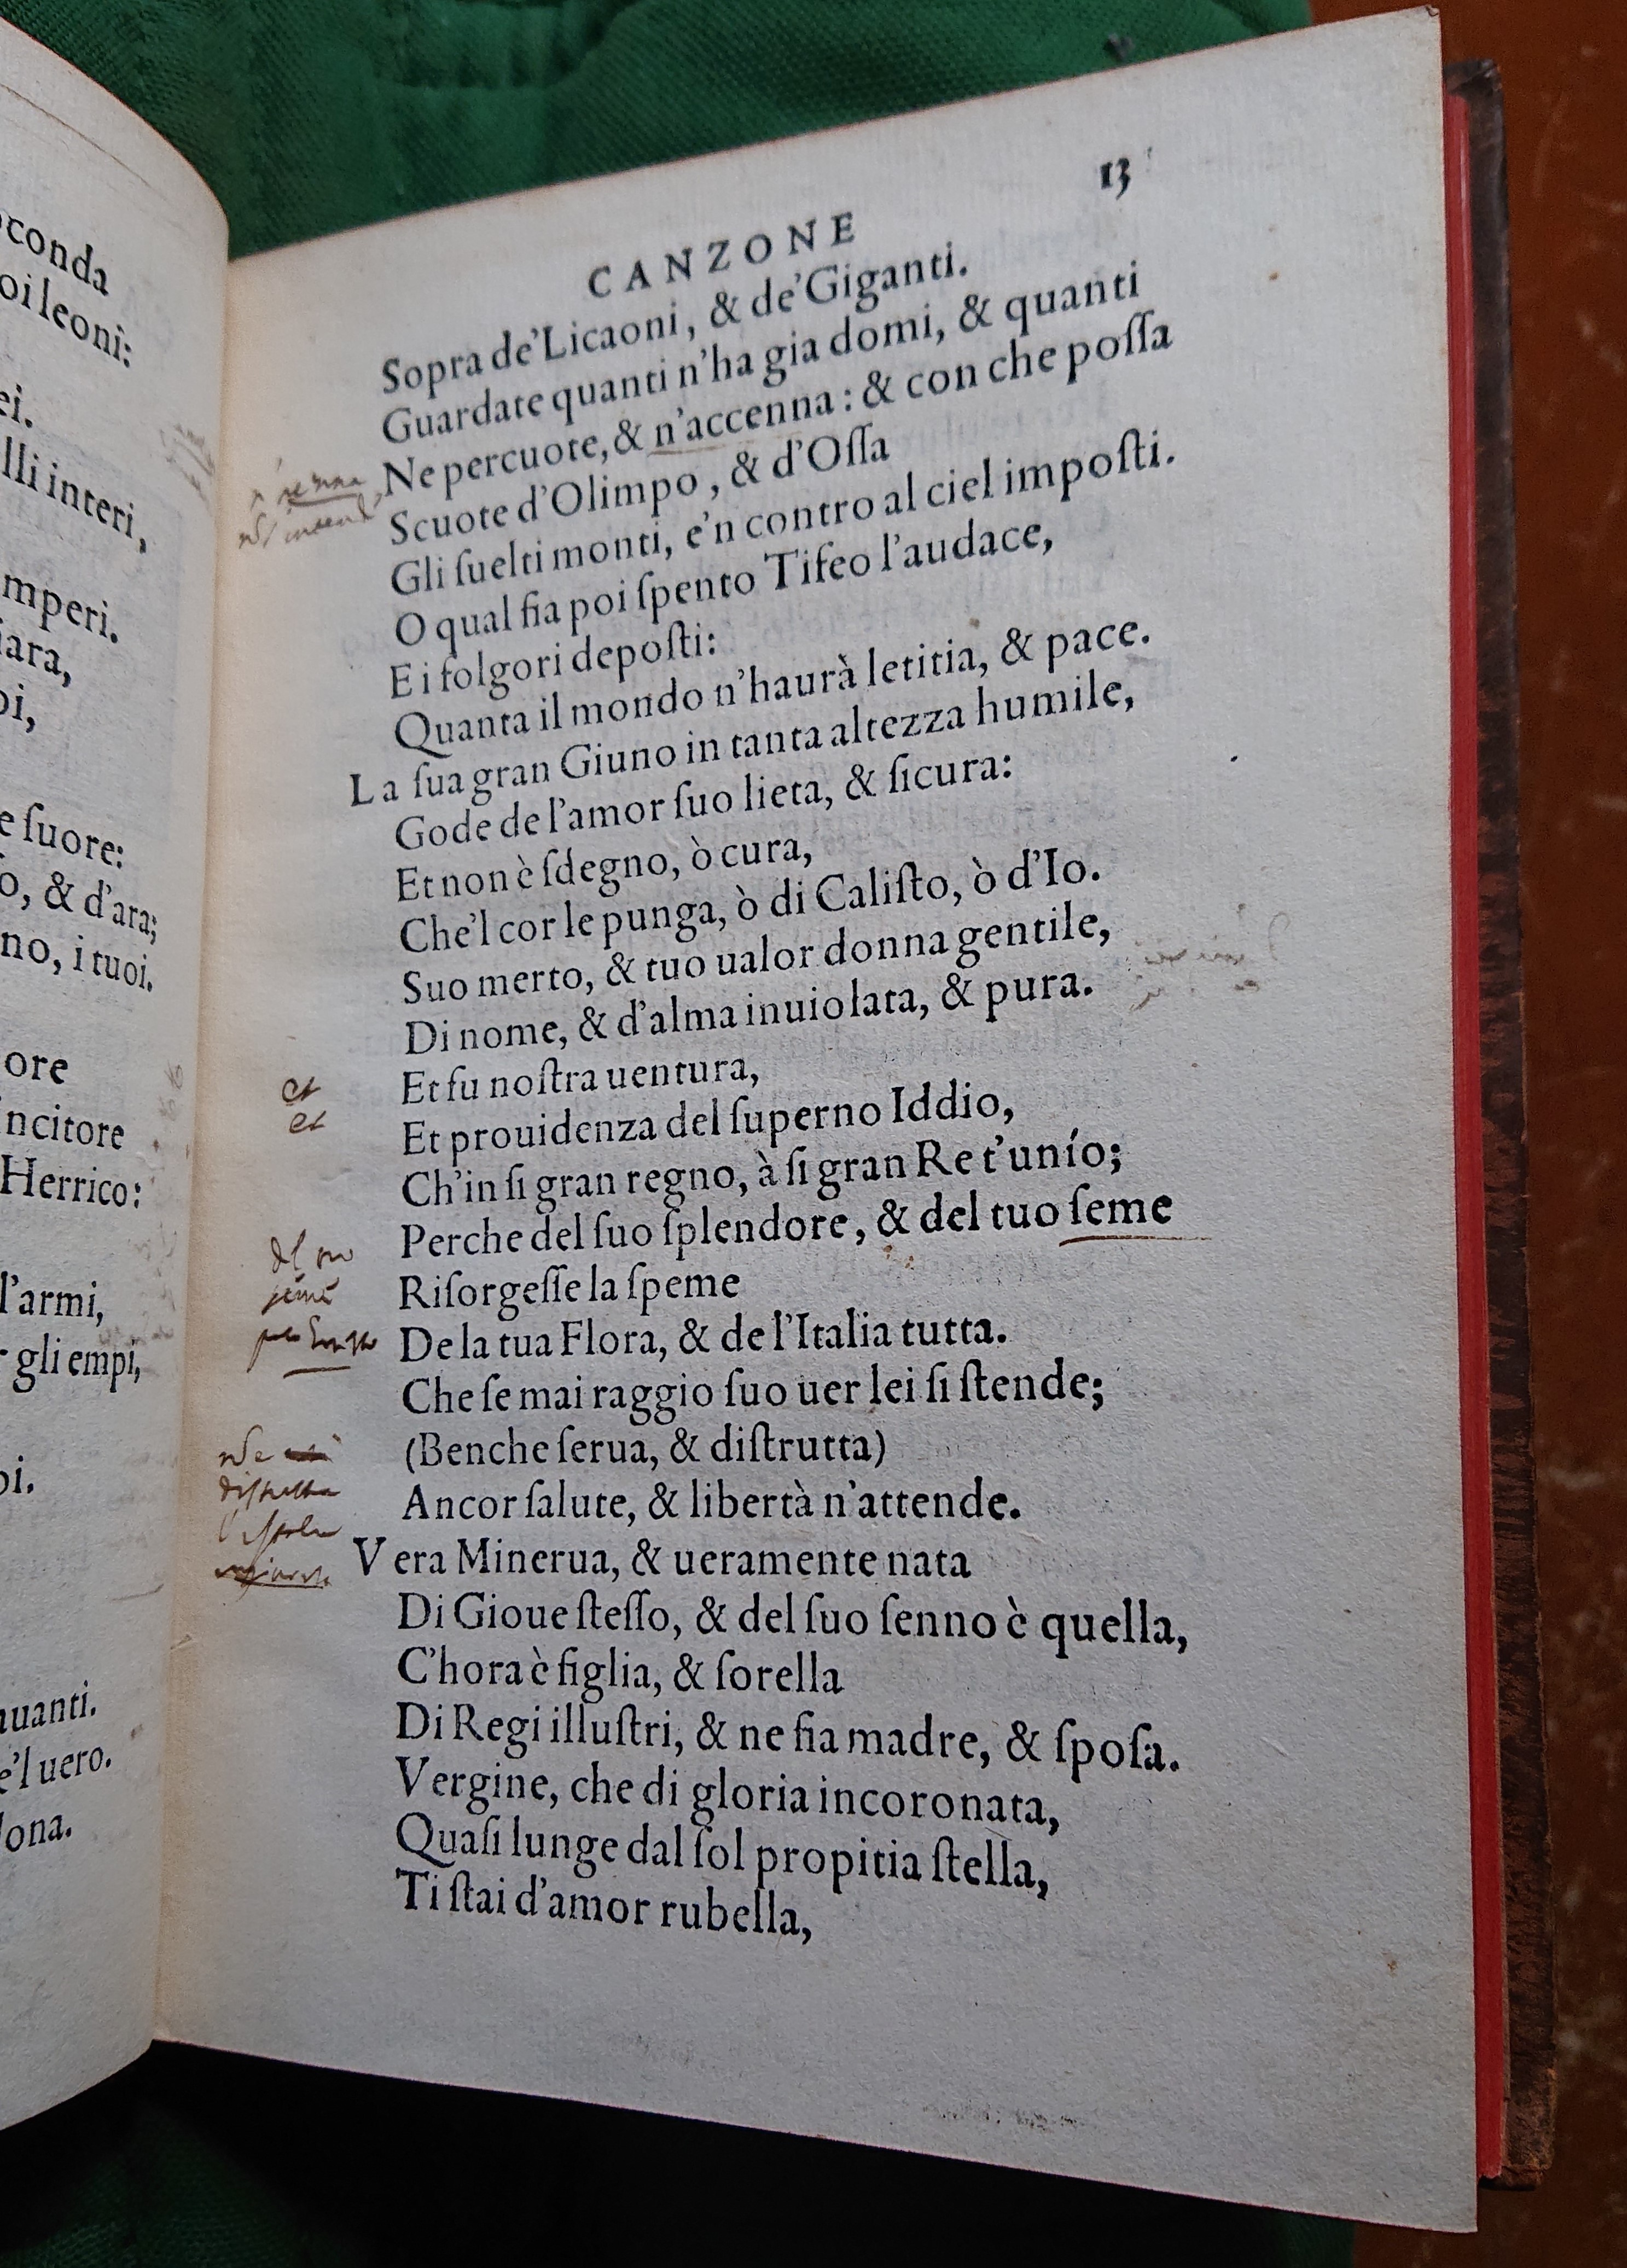 conda
oi leoni:
ei.
lli interi,
mperi.
iara,
oi,
e ſuore:
o, & d'ara;
no, i tuoi.
ore
incitore
Herrico:
l'armi,
gli empi,
oi.
uanti.
e'l uero.
lona.
13
CANZONE
Sopra de'Licaoni, & de'Giganti.
Guardate quanti n'ha gia domi, & quanti
Ne percuote, & n'accenna: & con che poſſa
Scuote d'Olimpo, & d'Oſſa
Gli ſuelti monti, e'n contro al ciel impoſti.
O qual fia poi ſpento Tifeo l'audace,
E i folgori depoſti:
Quanta il mondo n'haurà letitia, & pace.
La ſua gran Giuno in tanta altezza humile,
Gode de l'amor ſuo lieta, & ſicura:
Et non è ſdegno, ò cura,
Che'l cor le punga, ò di Caliſto, ò d'Io.
Suo merto, & tuo ualor donna gentile,
Di nome, & d'alma inuiolata, & pura.
Et fu noſtra uentura,
et
Et prouidenza del ſuperno Iddio,
et
Ch'in ſi gran regno, à ſi gran Re t'unío;
Perche del ſuo ſplendore, & del tuo ſeme
Riſorgeſſe la ſpeme
De la tua Flora, & de l'Italia tutta.
Che ſe mai raggio ſuo uer lei ſi ſtende;
(Benche ſerua, & diſtrutta)
Ancor ſalute, & libertà n'attende.
Vera Minerua, & ueramente nata
Di Gioue ſteſſo, & del ſuo ſenno è quella,
C'hora è figlia, & ſorella
Di Regi illuſtri, & ne fia madre, & ſpoſa.
Vergine, che di gloria incoronata,
Quaſi lunge dal ſol propitia ſtella,
Ti ſtai d'amor rubella,